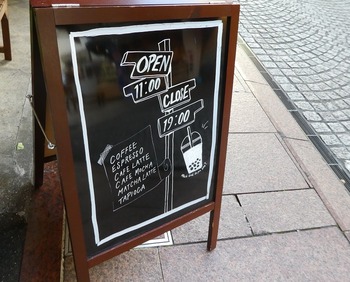 OPEN
11:00
CLOSE
19:00
COFFEE
ESPRESSO
CAFE LATTE
CAFE MOCHA
MATCHA LATTE
TAPIOCA